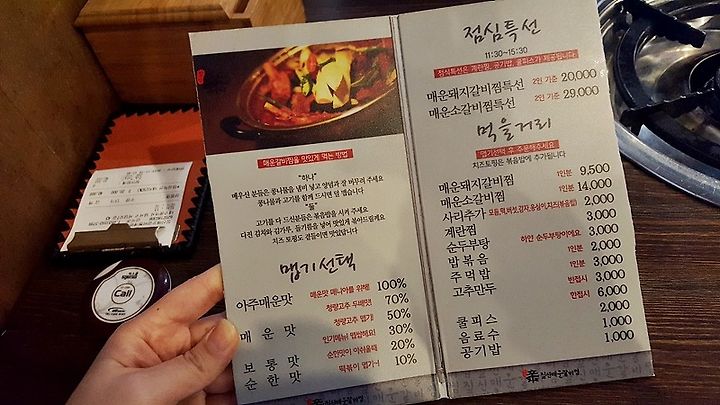 매운갈비찜을 맛있게 먹는 방법
"하나"
매우신 분들은 콩나물을 냄비 넣고 양념과 잘 버무려 주세요
콩나물과 고기를 함께 드시면 덜 맵습니다
"둘"
고기를 다 드신분들은 볶음밥을 시켜 주세요
다진 김치와 김가루, 들기름을 넣어 맛있게 볶아드릴께요
치즈 토핑도 곁들이면 맛있답니다
맵기선택
아주매운맛 매운맛 매니아를 위해! 100%
청량고추 두배맛! 70%
매운맛 청량고추 맵기! 50%
인기메뉴! 맵썹해요! 30%
보통맛 순한맛이 아쉬울때 20%
순한맛 떡볶이 맵기~! 10%
점심특선
11:30~15:30
점심특선은 계란찜, 공기밥, 쿨피스가 제공됩니다
매운돼지갈비찜특선 2인 기준 20,000
매운소갈비찜특선 2인 기준 29,000
먹을거리
맵기선택 후 주문해주세요
치즈토핑은 볶음밥에 추가됩니다
매운돼지갈비찜 1인분 9,500
매운소갈비찜 1인분 14,000
사리추가 모듬,떡,버섯,감자,옹심이,치즈(볶음밥) 2,000
계란찜 3,000
순두부탕 하얀 순두부탕이에요 3,000
밥볶음 1인분 2,000
주먹밥 1인분 3,000
고추만두 반접시 3,000
한접시 6,000
쿨피스 2,000
음료수 1,000
공기밥 1,000
일신매운갈비찜
Call